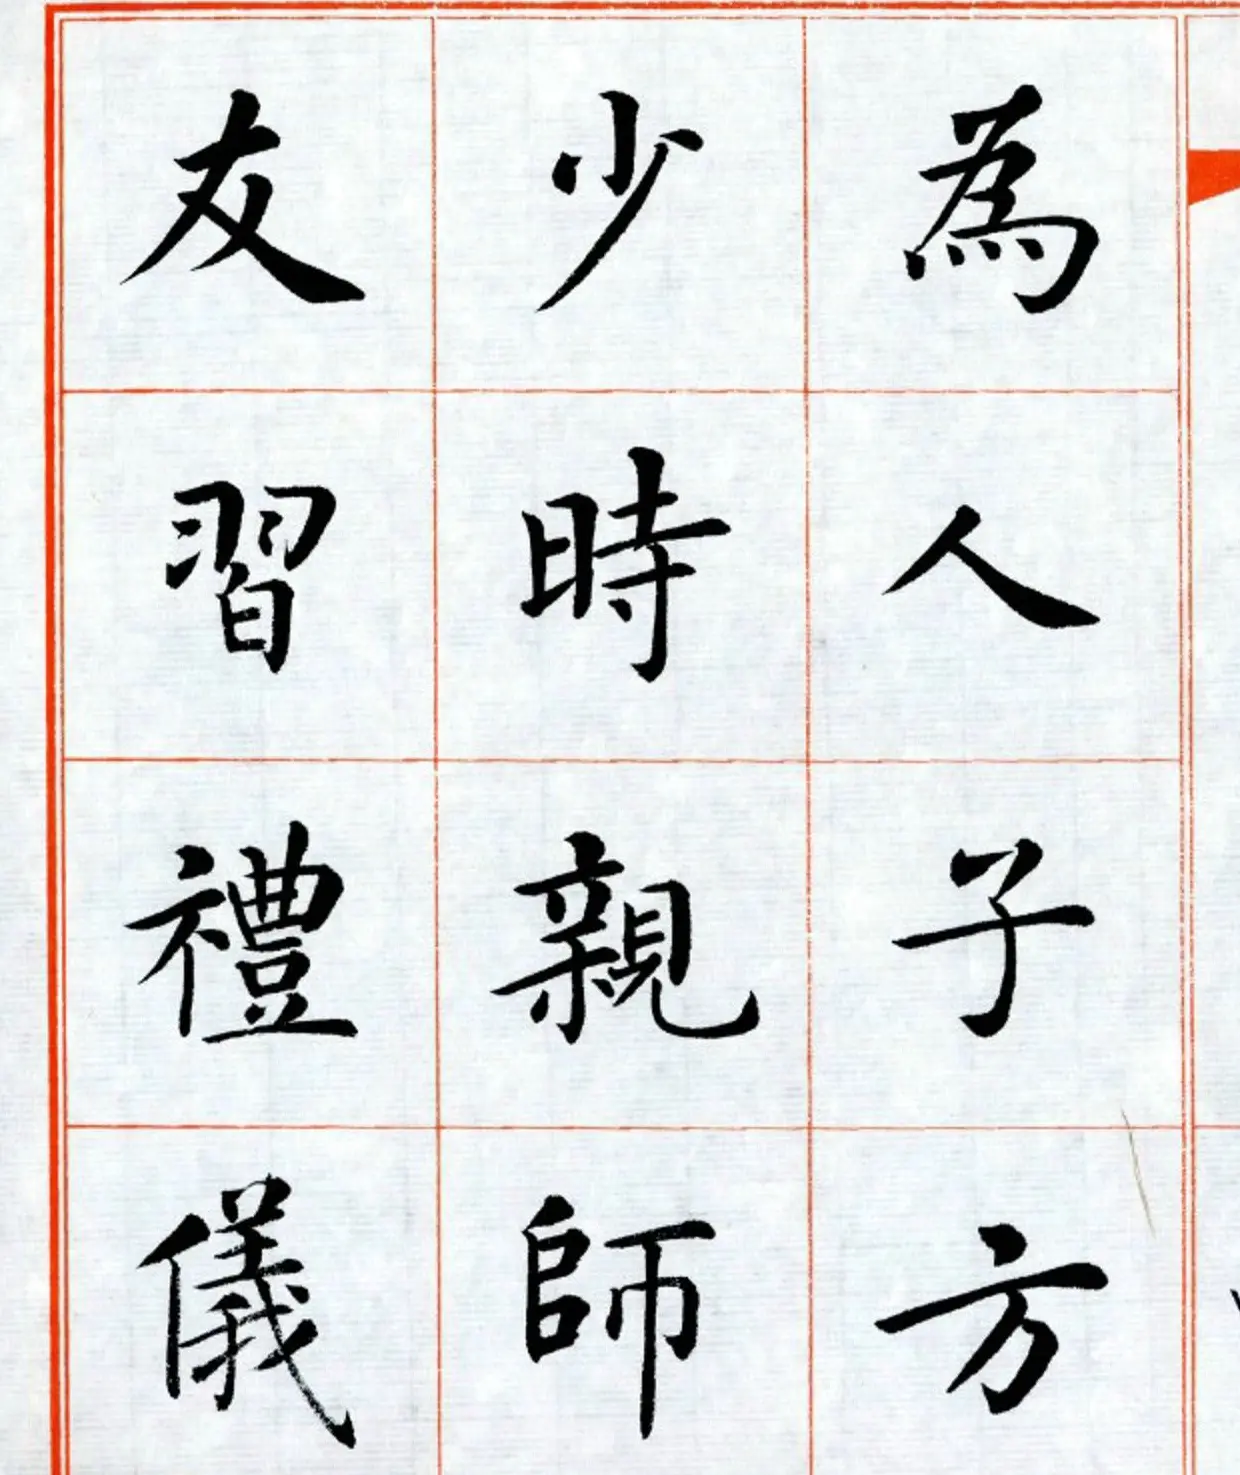 為人子方
少時親師
友習禮儀